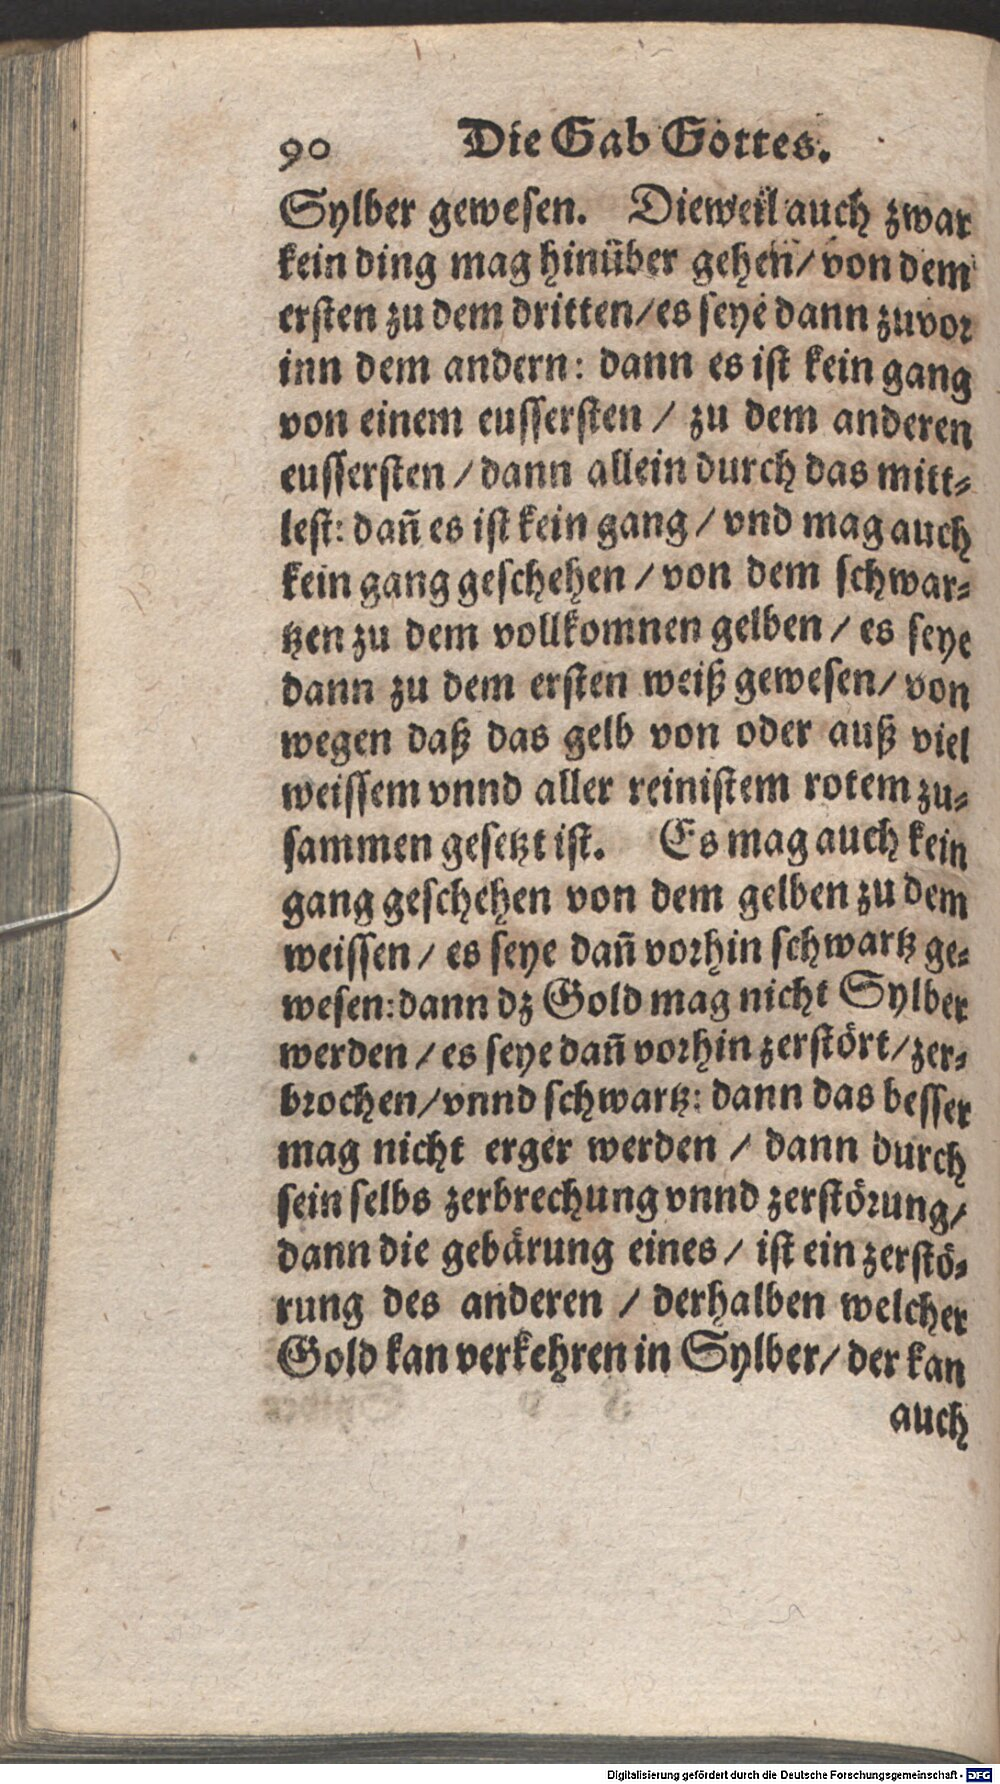 90 Die Gab Gottes.
Sylber gewesen. Dieweil auch zwar
kein ding mag hinüber gehen/ von dem
ersten zu dem dritten/es seye dann zuvor
inn dem andern: dann es ist kein gang
von einem eussersten / zu dem anderen
eussersten / dann allein durch das mitt-
lest: dañ es ist kein gang / vnd mag auch
kein gang geschehen / von dem schwar-
tzen zu dem vollkomnen gelben / es seye
dann zu dem ersten weiß gewesen/ von
wegen daß das gelb von oder auß viel
weissem vnnd aller reinistem rotem zu-
sammen gesetzt ist. Es mag auch kein
gang geschehen von dem gelben zu dem
weissen / es seye dañ vorhin schwartz ge-
wesen: dann dz Gold mag nicht Sylber
werden / es seye dañ vorhin zerstört/ zer-
brochen/ vnnd schwartz: dann das besser
mag nicht erger werden / dann durch
sein selbs zerbrechung vnnd zerstörung/
dann die gebärung eines / ist ein zerstö-
rung des anderen / derhalben welcher
Gold kan verkehren in Sylber/ der kan
auch
Digitalisierung gefördert durch die Deutsche Forschungsgemeinschaft - DFG